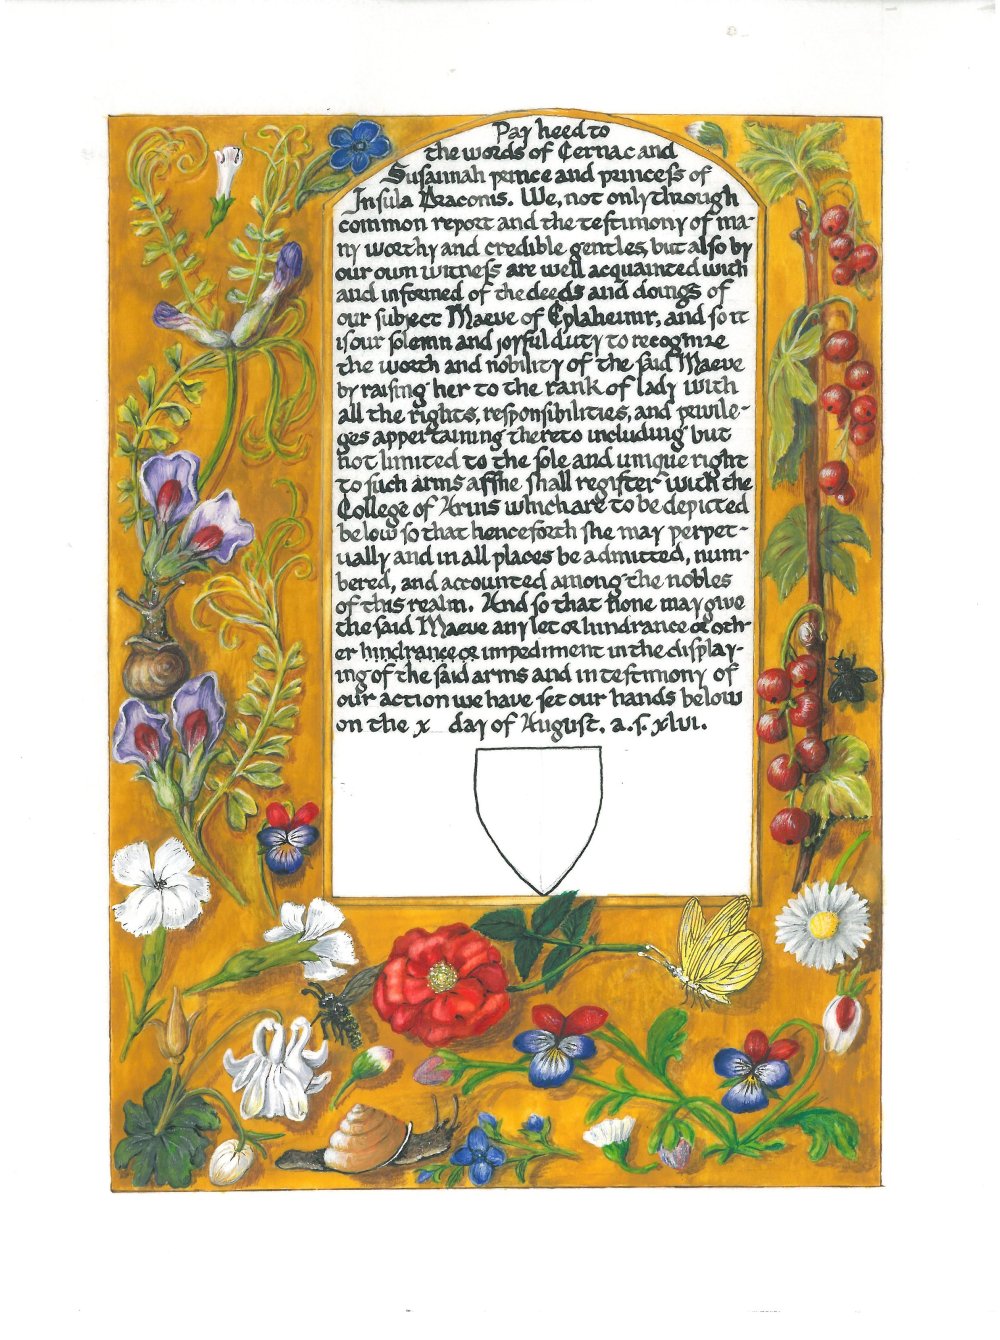 Pay heed to
the words of Cernac and
Susannah prince and princess of
Insula Draconis. We, not only through
common report and the testimony of ma-
ny worthy and credible gentles, but also by
our own witness are well acquainted with
and informed of the deeds and doings of
our subject Maeve of Eplaheimr, and so it
is our solemn and joyful duty to recognize
the worth and nobility of the said Maeve
by raising her to the rank of lady with
all the rights, responsibilities, and privile-
ges appertaining thereto including but
not limited to the sole and unique right
to such arms as she shall register with the
College of Arms which are to be depicted
below so that henceforth she may perpet-
ually and in all places be admitted, num-
bered, and accounted among the nobles
of this realm. And so that none may give
the said Maeve any let or hindrance or oth-
er hindrance or impediment in the display-
ing of the said arms and in testimony of
our action we have set our hands below
on the x day of August. a.s. xlvi.